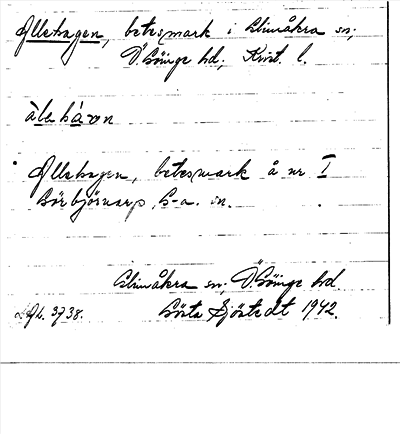 Ollehagen, betesmark i Glimåkra sn;
Ö. Göinge hd; Krist. l.
Ollehagen, betesmark å nr I
Görbjörnarp, G-a. sn.
Glimåkra sn; Ö. Göinge hd.
Gösta Sjöstedt 1942.
3738.